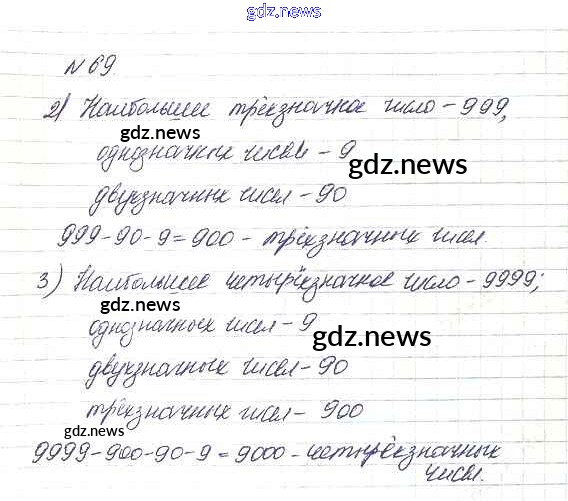 gdz.news
№69.
2) Наибольшее трёхзначное число - 999,
gdz.news
однозначных чисел - 9
gdz.news
двузначных чисел - 90
999-90-9=900 - трёхзначных чисел.
3) Наибольшее четырёхзначное число - 9999;
gdz.news
однозначных чисел - 9
gdz.news
двузначных чисел - 90
трёхзначных чисел - 900
gdz.news
9999-900-90-9=9000 - четырёхзначных
чисел.